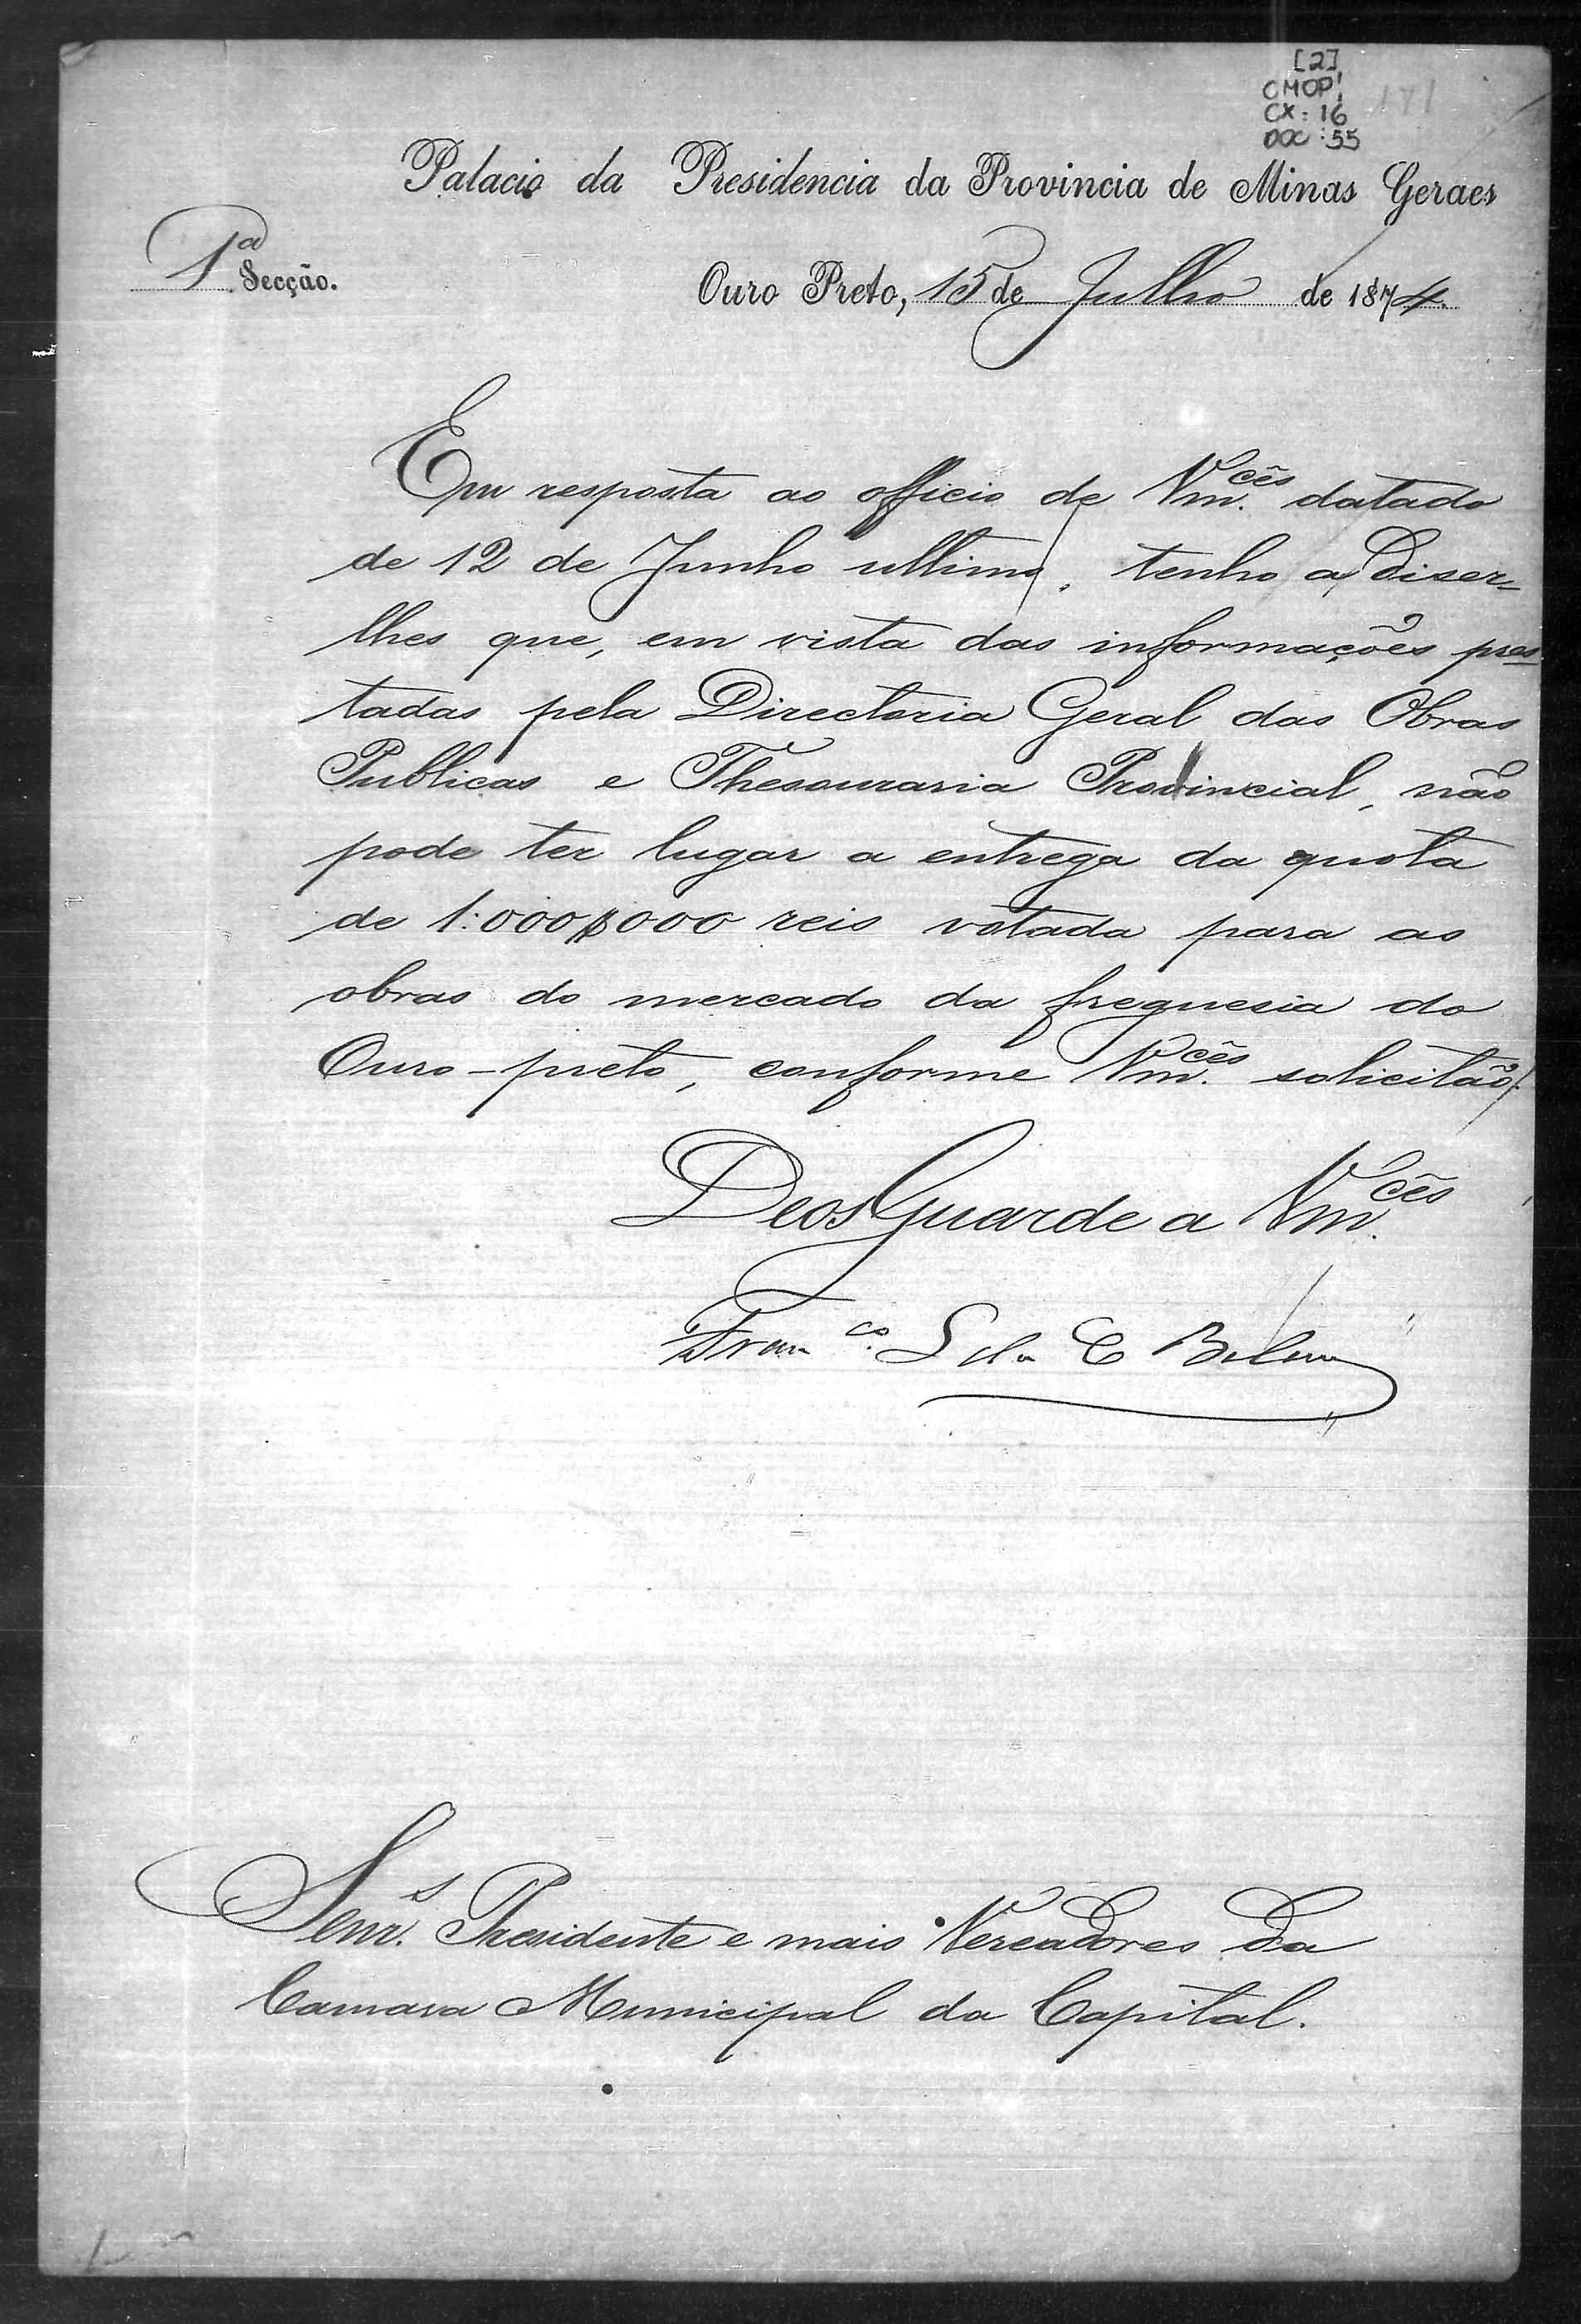 [2]
CMOP
CX: 16
DOC: 55
Palacio da Presidencia da Provincia de Minas Geraes
1ª Secção.
Ouro Preto, 15 de Julho de 1874.
Em resposta ao officio de Vm.cês datado
de 12 de Junho ultimo, tenho a diser-
lhes que, em vista das informações pres-
tadas pela Directoria Geral das Obras
Publicas e Thesouraria Provincial, não
pode ter lugar a entrega da quota
de 1:000$000 reis votada para as
obras do mercado da freguesia do
Ouro-preto, conforme Vm.cês solicitão.
Deos Guarde a Vm.cês
Fran.co
Senr.s Presidente e mais Vereadores da
Camara Municipal da Capital.